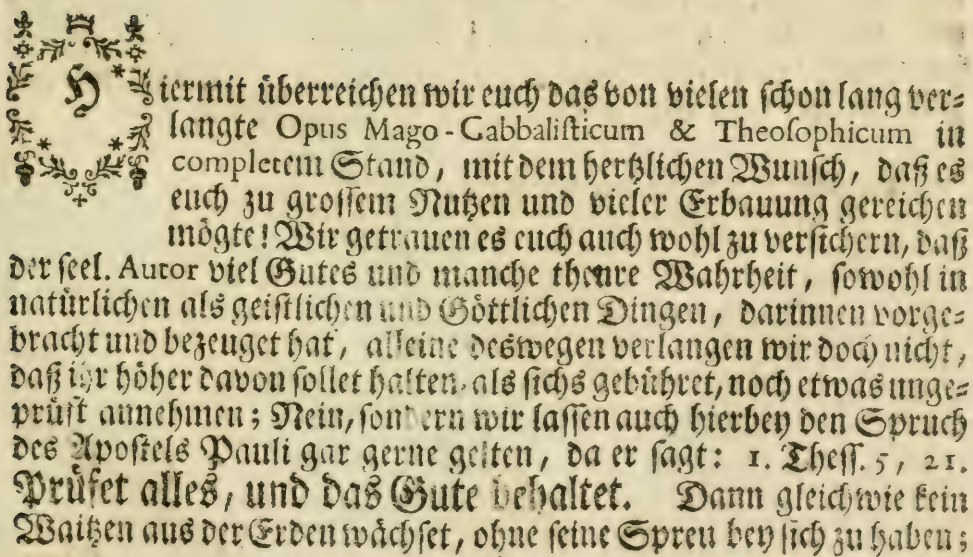 Hiermit überreichen wir euch das von vielen schon lang ver=
langte Opus Mago-Cabbalisticum & Theosophicum in
completem Stand, mit dem hertzlichen Wunsch, daß es
euch zu grossem Nutzen und vieler Erbauung gereichen
mögte! Wir getrauen es euch auch wohl zu versichern, daß
der seel. Autor viel Gutes und manche theure Wahrheit, sowohl in
natürlichen als geistlichen und Göttlichen Dingen, darinnen vorge=
bracht und bezeuget hat, alleine deswegen verlangen wir doch nicht,
daß ihr höher davon sollet halten, als sichs gebühret, noch etwas unge=
prüft annehmen; Nein, sondern wir lassen auch hierbey den Spruch
des Apostels Pauli gar gerne gelten, da er sagt: 1. Thess. 5, 21.
Prüfet alles, und das Gute behaltet. Dann gleichwie kein
Waitzen aus der Erden wächset, ohne seine Spreu bey sich zu haben;